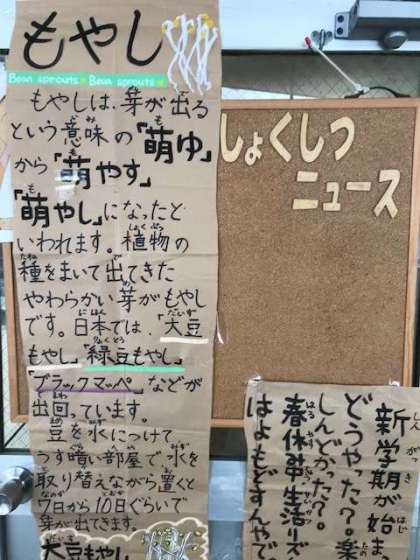 もやし
Bean sprouts Bean sprouts
もやしは、芽が出る
という意味の「萌ゆ」
から「萌やす」
「萌やし」になったと
いわれます。植物の
種をまいて出てきた
やわらかい芽がもやし
です。日本では、「大豆
もやし」「緑豆もやし」
「ブラックマッペ」などが
出回っています。
豆を水につけて、
うす暗い部屋で水を
取り替えながら置くと
7日から10日ぐらいで
芽が出てきます。
大豆もやし
しょくしつ
ニュース
新学期が始ま
どうやった?楽
しんどかった?。
春休み生活リ
はよもどすんやで